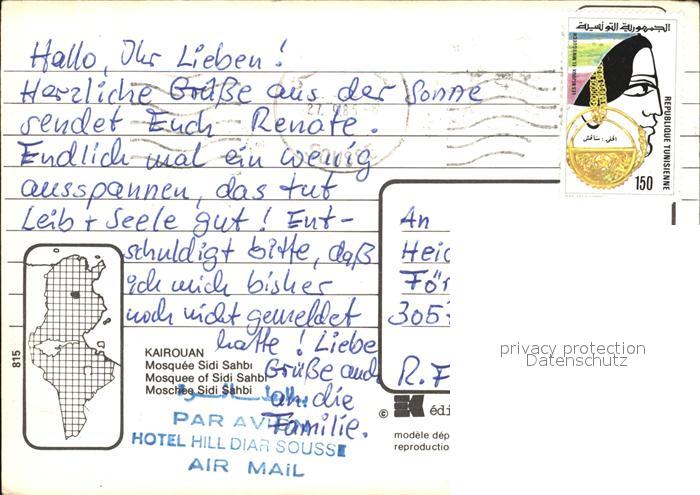 Hallo, Ihr Lieben!
Herzliche Grüße aus der Sonne
sendet Euch Renate.
Endlich mal ein wenig
ausspannen, das tut
Leib + Seele gut! Ent-
schuldigt bitte, daß
ich mich bisher
noch nicht gemeldet
hatte! Liebe
Grüße auch
an die
Familie.
الجمهورية التونسية
REPUBLIQUE TUNISIENNE
150
An
Heid
För
305
R.F
privacy protection
Datenschutz
815
KAIROUAN
Mosquée Sidi Sahbi
Mosquee of Sidi Sahbi
Moschee Sidi Sahbi
PAR AVION
HOTEL HILL DIAR SOUSSE
AIR MAIL
© édi
modèle dép
reproductio